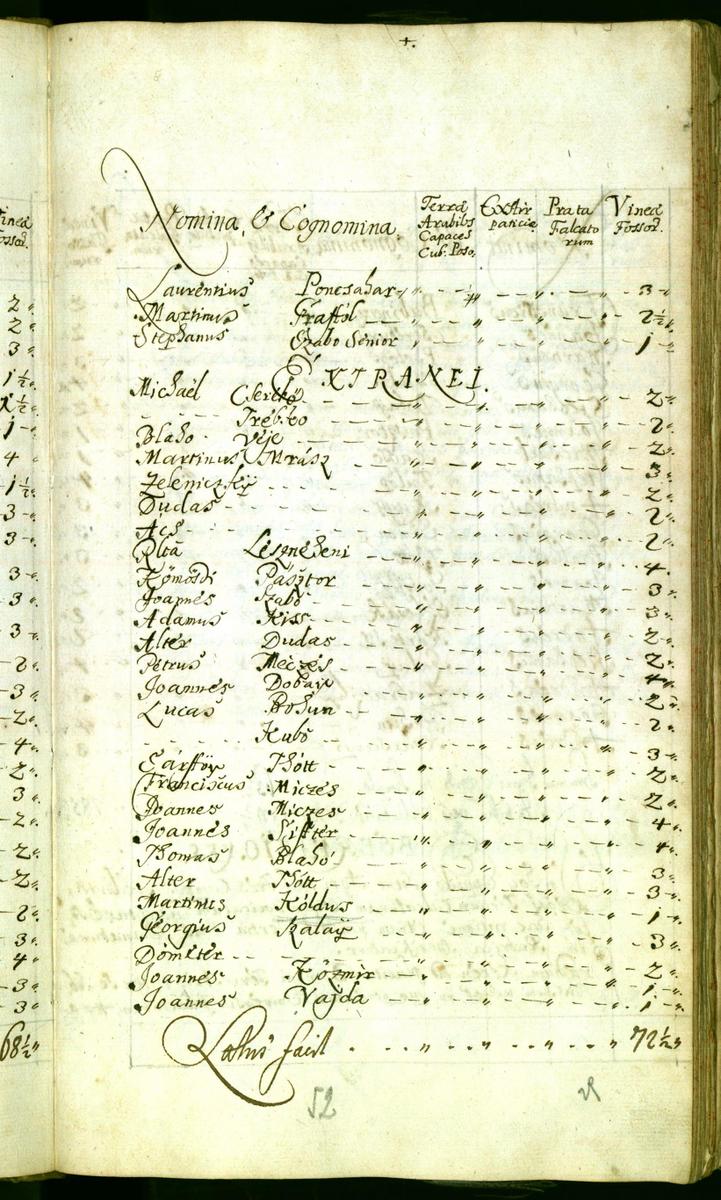 +.
Nomina, & Cognomina. Terrã Arabibs Capaces Cub: Poso. Extir paticiæ Prata Falcato rum Vineã Fossor.
Laurentius Poncsahar " " " 3 "
Martinus Graffÿl " " " 2½ "
Stephanus Szabo Senior " " " 1 "
EXTRANEI.
Michaël Cserkó " " " 2 "
- - Trebko " " " 2 "
Blaho Veje " " " 2 "
Martinus Mrász " " " 3 "
Zeleniczky " " " 2 "
Dudas " " " 2 "
Acs " " " 2 "
Rita " " " 4 "
Kömösdi Pásztor " " " 3 "
Joannes Szabó " " " 3 "
Adamus Kiss " " " 2 "
Alter Dudas " " " 2 "
Petrus Meczes " " " 4 "
Joannes Dobaÿ " " " 2 "
Lucas Bohun " " " 2 "
- - Kubó " " " 3 "
Thótt " " " 2 "
Franciscus Miczés " " " 2 "
Joannes Miczes " " " 4 "
Joannes Siffter " " " 4 "
Thomas Blahó " " " 3 "
Alter Thótt " " " 3 "
Martinus Kóldus " " " 1 "
Georgius Kalaÿ " " " 3 "
Dömeter " " " 2 "
Joannes Kózmír " " " 1 "
Joannes Vajda " " " 1 "
Latus facit " " " 72½ "
52